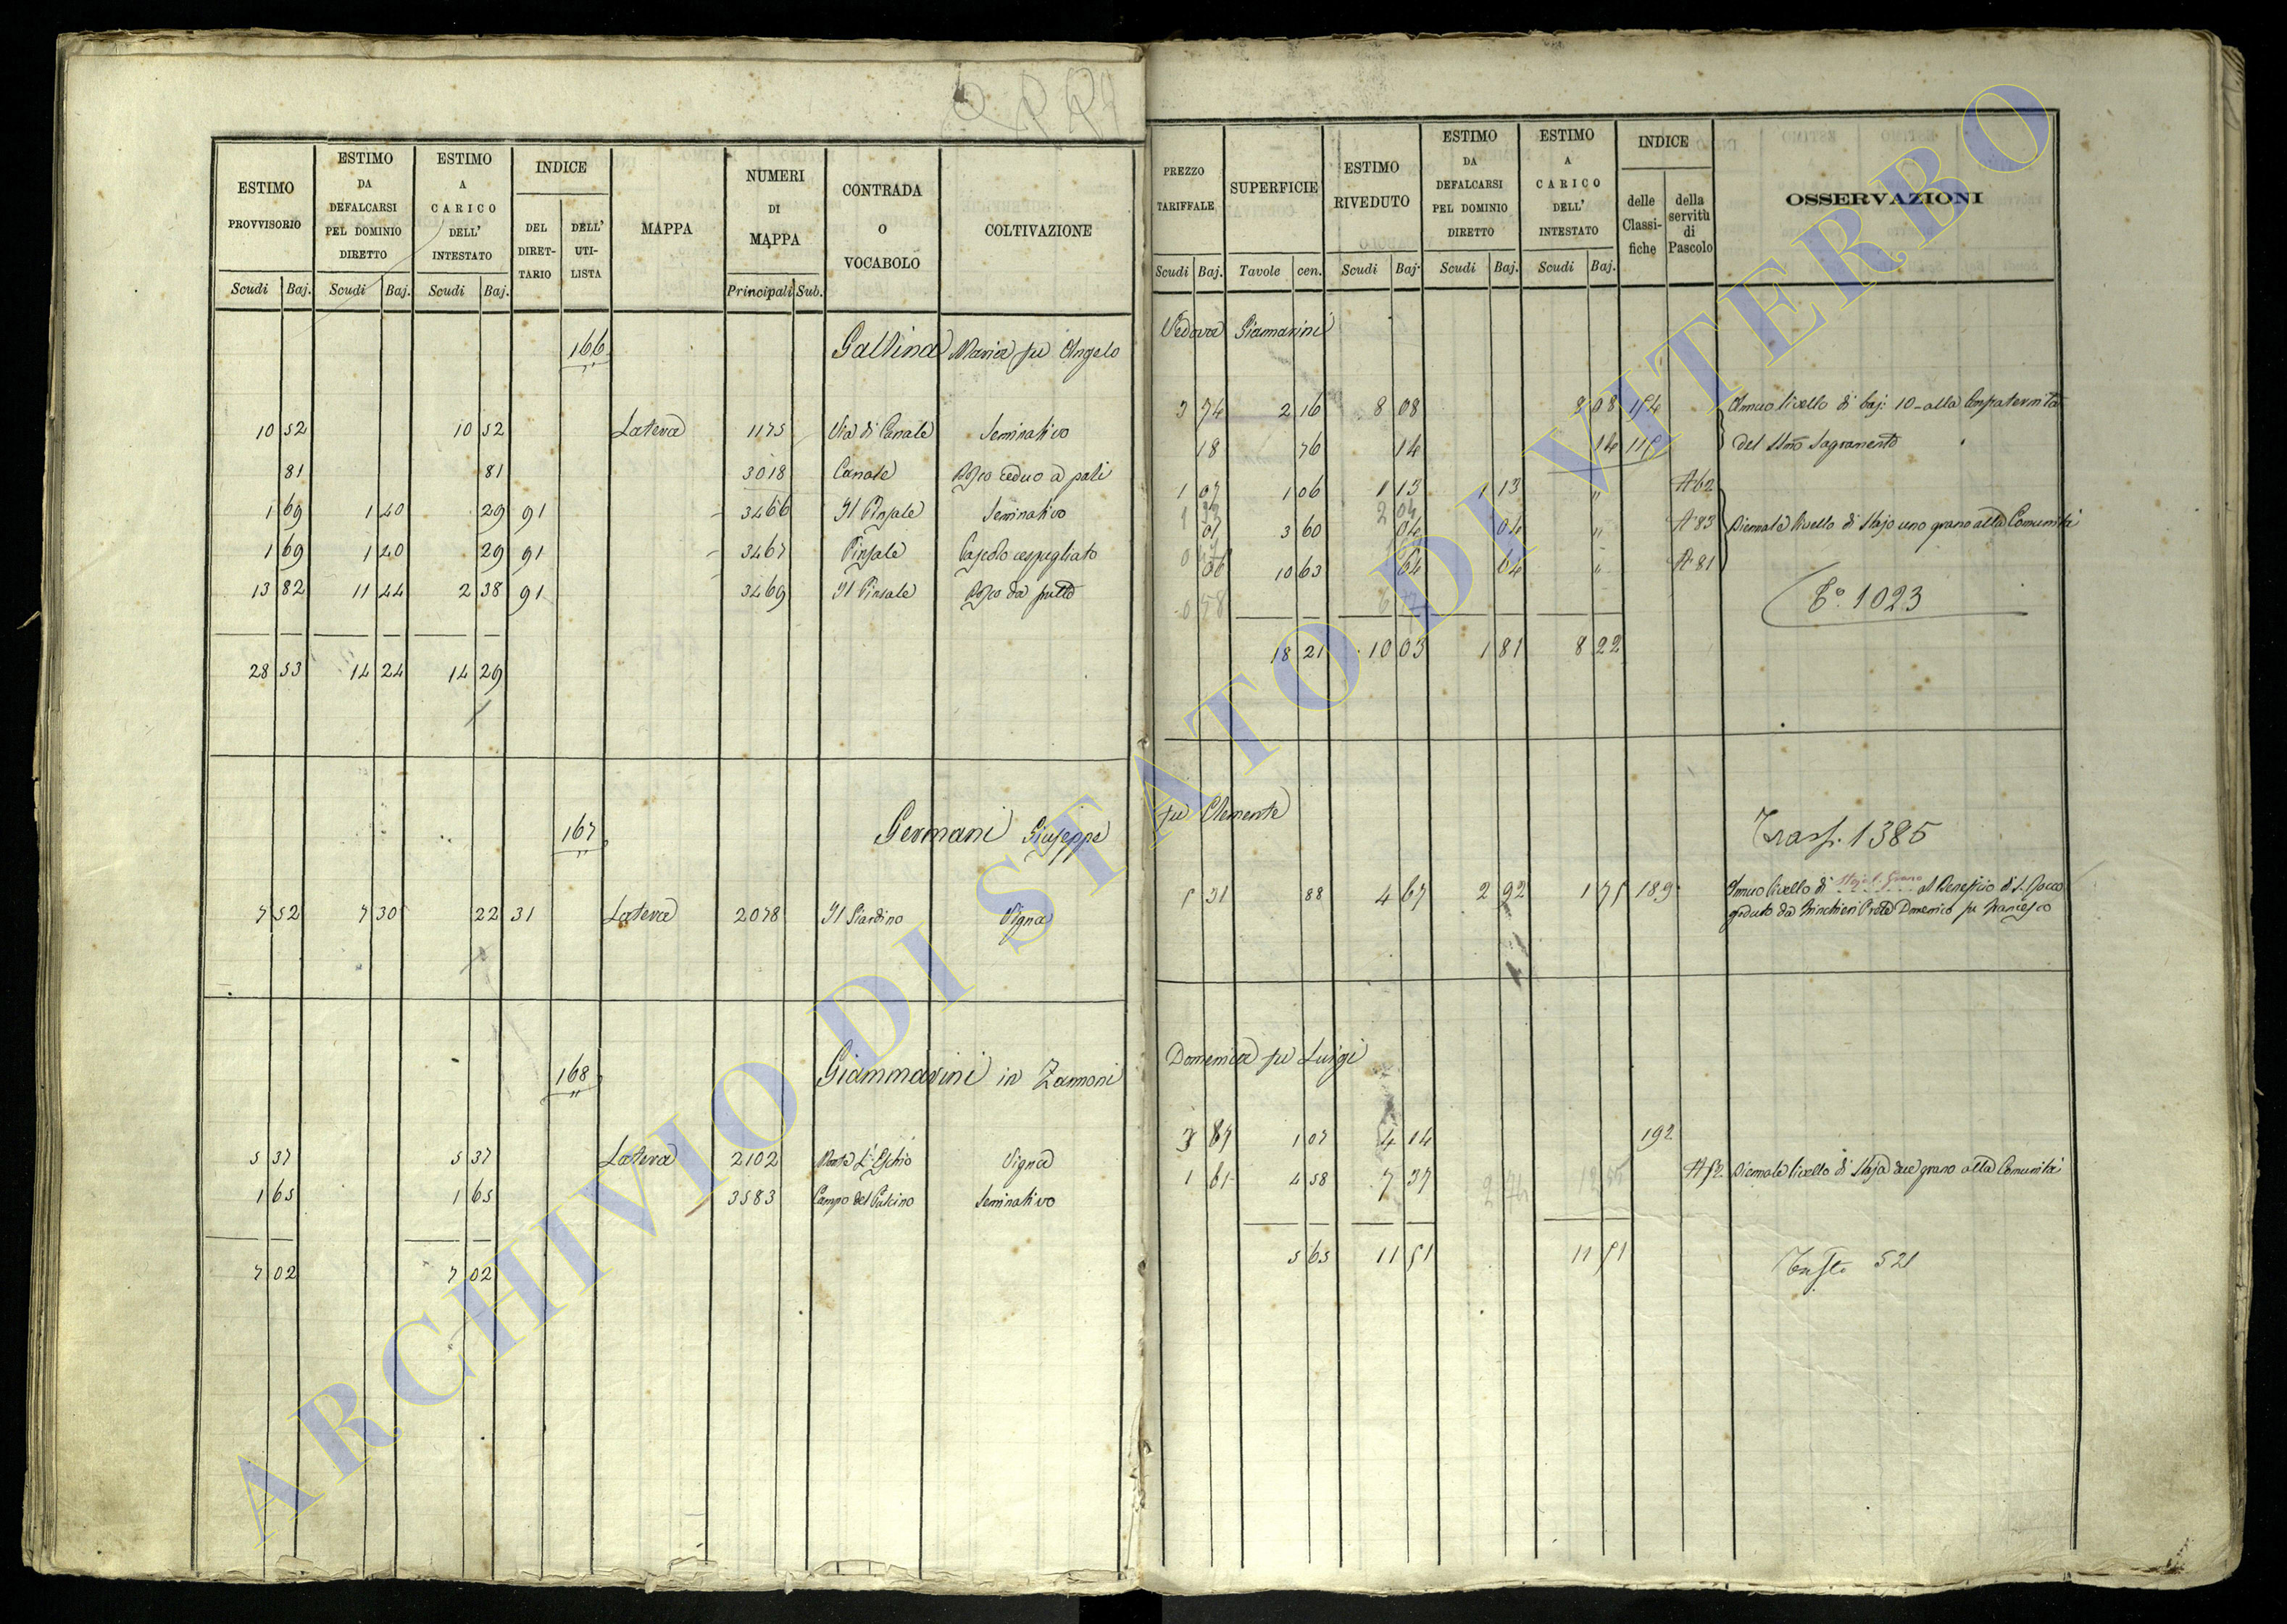 ESTIMO PROVVISORIO
ESTIMO DA DEFALCARSI PEL DOMINIO DIRETTO
ESTIMO A CARICO DELL' INTESTATO
INDICE
DEL DIRET-TARIO
DELL' UTI-LISTA
MAPPA
NUMERI DI MAPPA
CONTRADA O VOCABOLO
COLTIVAZIONE
Scudi Baj. Scudi Baj. Scudi Baj. Principali Sub.
166 Gallina Maria fu Angelo
10 52 10 52 Latera 1175 Via di Canale Seminativo
81 81 3018 Canale Bosco ceduo a pali
1 69 1 40 29 91 3466 Il Pinsale Seminativo
1 69 1 40 29 91 3467 Pinsale Pascolo cespugliato
13 82 11 44 2 38 91 3469 Il Pinsale Bosco da frutto
28 53 14 24 14 29
167 Germani Giuseppe
7 52 7 30 22 31 Latera 2078 Il Giardino Vigna
168 Giammarini in Zannoni
5 37 5 37 Latera 2102 Vigna
1 65 1 65 3583 Campo del Seminativo
7 02 7 02
PREZZO TARIFFALE
SUPERFICIE
ESTIMO RIVEDUTO
ESTIMO DA DEFALCARSI PEL DOMINIO DIRETTO
ESTIMO A CARICO DELL' INTESTATO
INDICE
delle Classi-fiche
della servitù di Pascolo
OSSERVAZIONI
Scudi Baj. Tavole cen. Scudi Baj. Scudi Baj. Scudi Baj.
Vedova Giamarini
3 74 2 16 8 08 8 08 154 Annuo livello di baj: 10 - alla Confraternita
18 76 14 14 115 del SSmo Sagramento
1 07 1 06 1 13 1 13 " A 62
07 3 60 04 04 " A 83 Biennale livello di Stajo uno grano alla Comunità
06 10 63 64 64 " A 81
T° 1023
18 21 10 03 1 81 8 22
fu Clemente
Trasf. 1385
5 31 88 4 67 2 92 1 75 189 Annuo livello di Staj. 1. Grano al Beneficio di S. Rocco
goduto da Prete Domenico fu Francesco
Domenica fu Luigi
3 87 1 07 4 14 192
1 61 4 58 7 37 A 52 Biennale livello di Staja due grano alla Comunità
5 65 11 51 11 51
521
ARCHIVIO DI STATO DI VITERBO